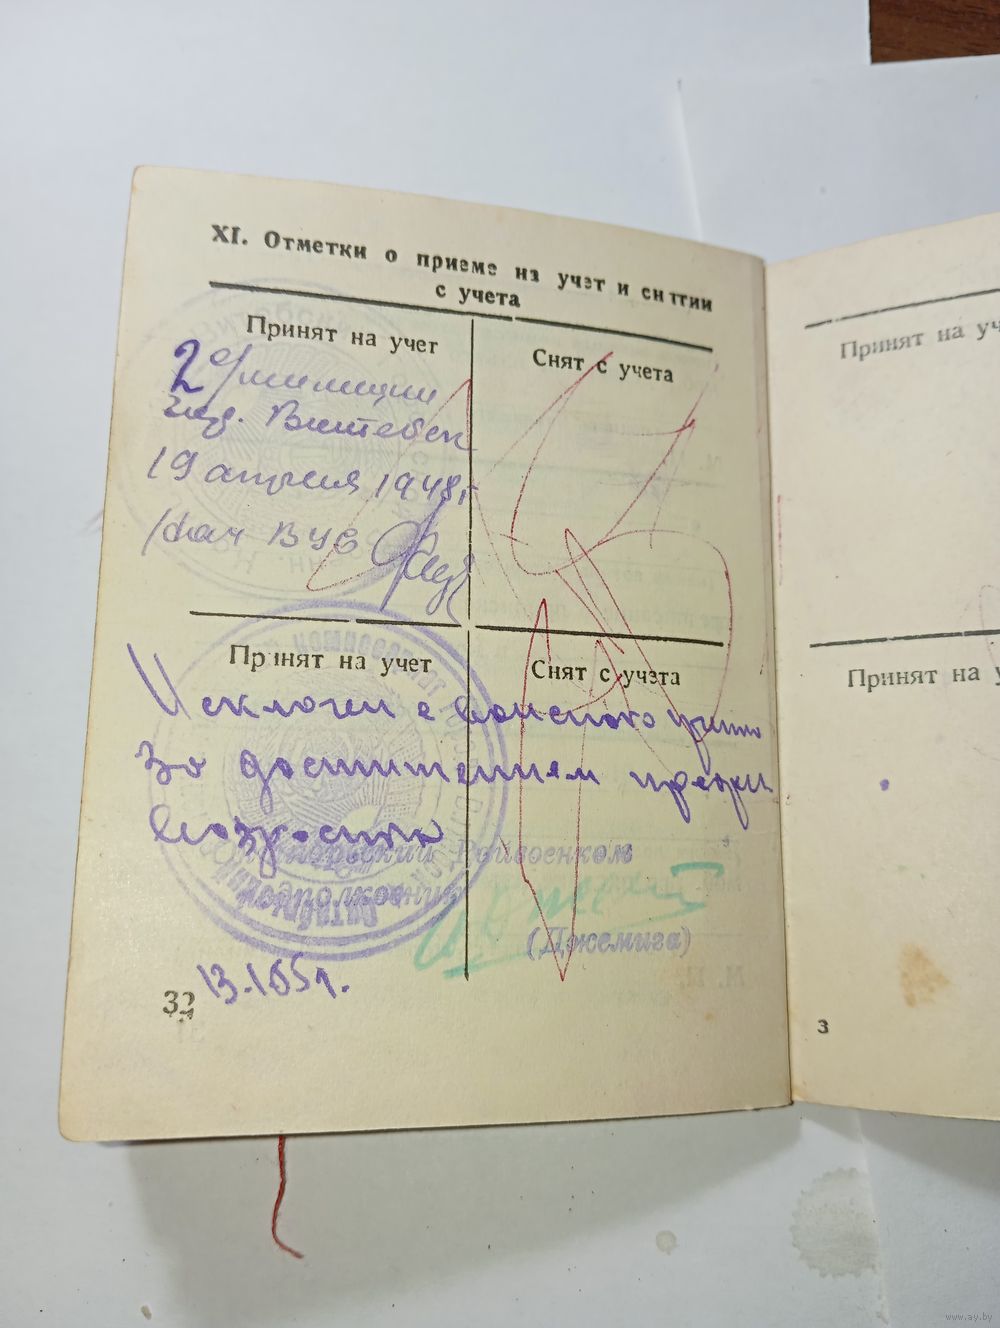 XI. Отметки о приеме на учет и снятии
с учета
Принят на учет
Снят с учета
2 о/милиции
гор. Витебск
19 апреля 1948 г
Нач ВУС
Принят на учет
Снят с учета
Исключен с воинского учета
за достижением предел
возраста
Райвоенком
Подполковник
(Джемига)
13.1 55 г.
32
Принят на уч
Принят на у
3
www.ay.by